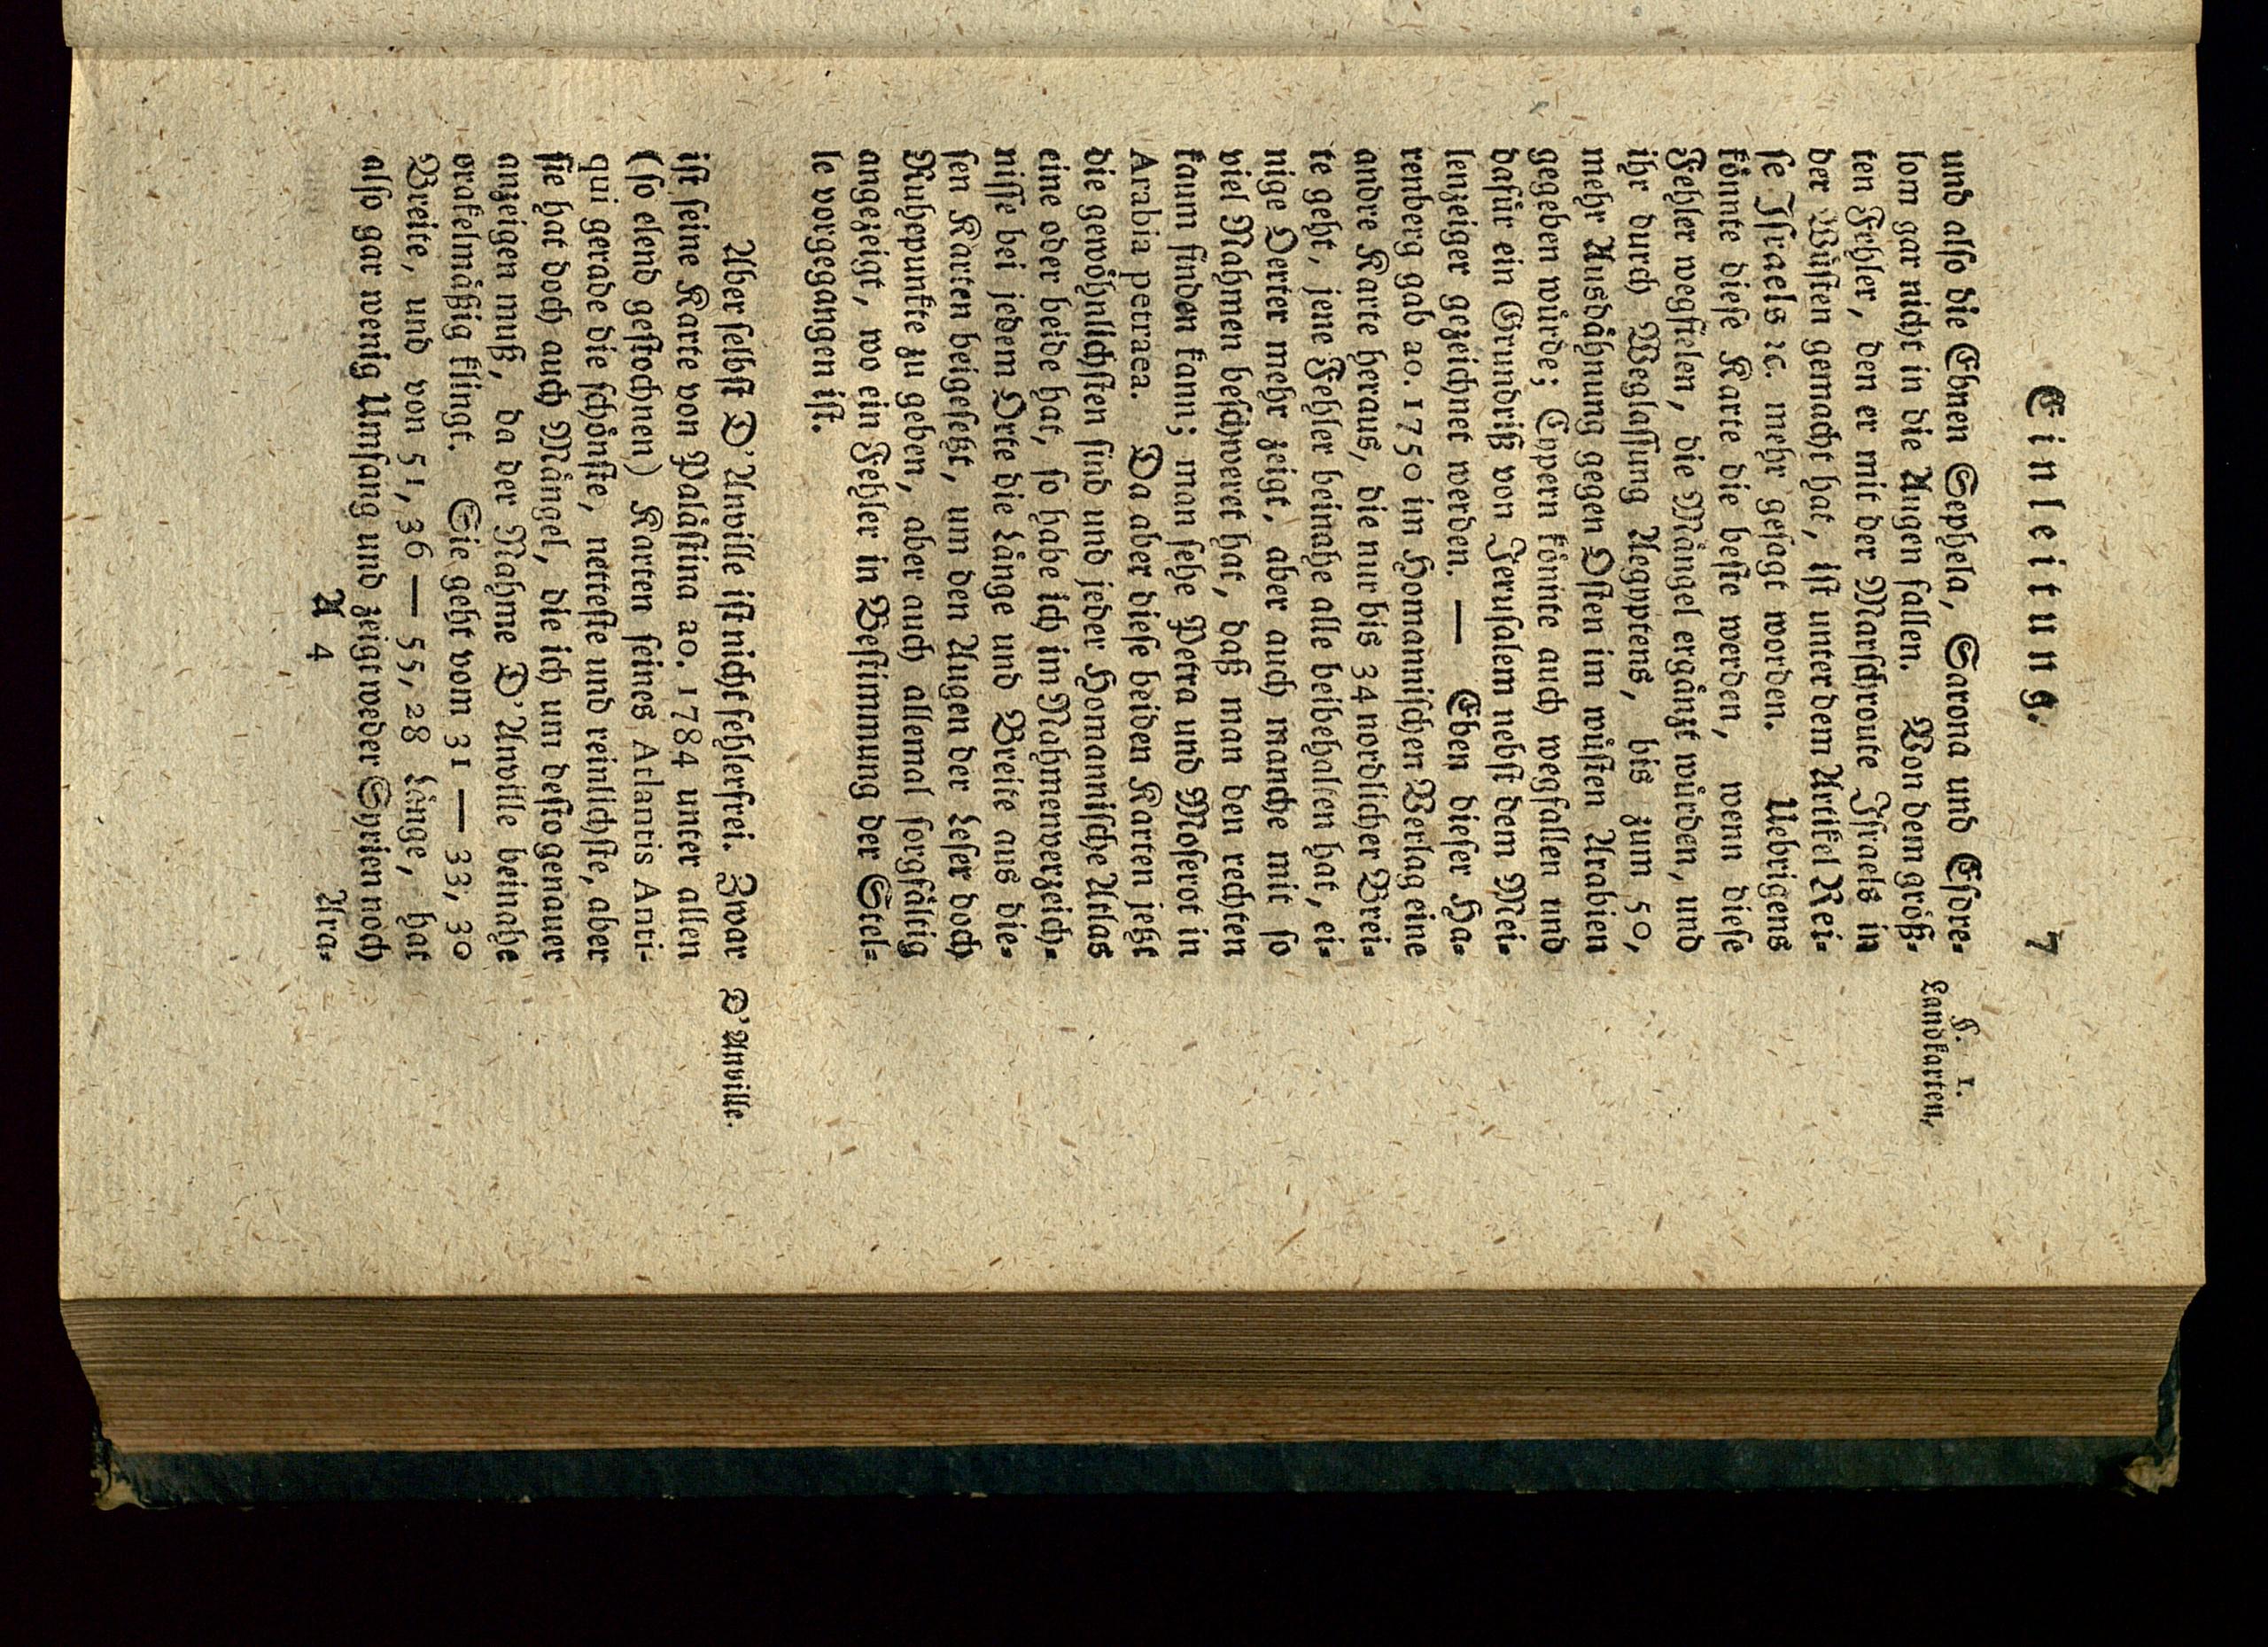 Einleitung. 7
§. 1.
Landkarten,
und also die Ebnen Sephela, Sarona und Esdre-
lom gar nicht in die Augen fallen. Von dem größ-
ten Fehler, den er mit der Marschroute Israels in
der Wüsten gemacht hat, ist unter dem Artikel Rei-
se Israels ꝛc. mehr gesagt worden. Uebrigens
könnte diese Karte die beste werden, wenn diese
Fehler wegfielen, die Mängel ergänzt würden, und
ihr durch Weglassung Aegyptens, bis zum 50,
mehr Ausdähnung gegen Osten im wüsten Arabien
gegeben würde; Cypern könnte auch wegfallen und
dafür ein Grundriß von Jerusalem nebst dem Mei-
lenzeiger gezeichnet werden. — Eben dieser Ha-
renberg gab ao. 1750 im Homannischen Verlag eine
andre Karte heraus, die nur bis 34 nordlicher Brei-
te geht, jene Fehler beinahe alle beibehalten hat, ei-
nige Oerter mehr zeigt, aber auch manche mit so
viel Nahmen beschweret hat, daß man den rechten
kaum finden kann; man sehe Petra und Moserot in
Arabia petraea. Da aber diese beiden Karten jetzt
die gewöhnlichsten sind und jeder Homannische Atlas
eine oder beide hat, so habe ich in Nahmenverzeich-
nisse bei jedem Orte die Länge und Breite aus die-
sen Karten beigesetzt, um den Augen der Leser doch
Ruhepunkte zu geben, aber auch allemal sorgfältig
angezeigt, wo ein Fehler in Bestimmung der Stel-
le vorgegangen ist.
Aber selbst D'Anville ist nicht fehlerfrei. Zwar
D'Anville.
ist seine Karte von Palästina ao. 1784 unter allen
(so elend gestochnen) Karten seines Atlantis Anti-
qui gerade die schönste, netteste und reinlichste, aber
sie hat doch auch Mängel, die ich um desto genauer
anzeigen muß, da der Nahme D'Anville beinahe
orakelmäßig klingt. Sie geht vom 31 — 33, 30
Breite, und von 51, 36 — 55, 28 Länge, hat
also gar wenig Umfang und zeigt weder Syrien noch
A 4 Ara-